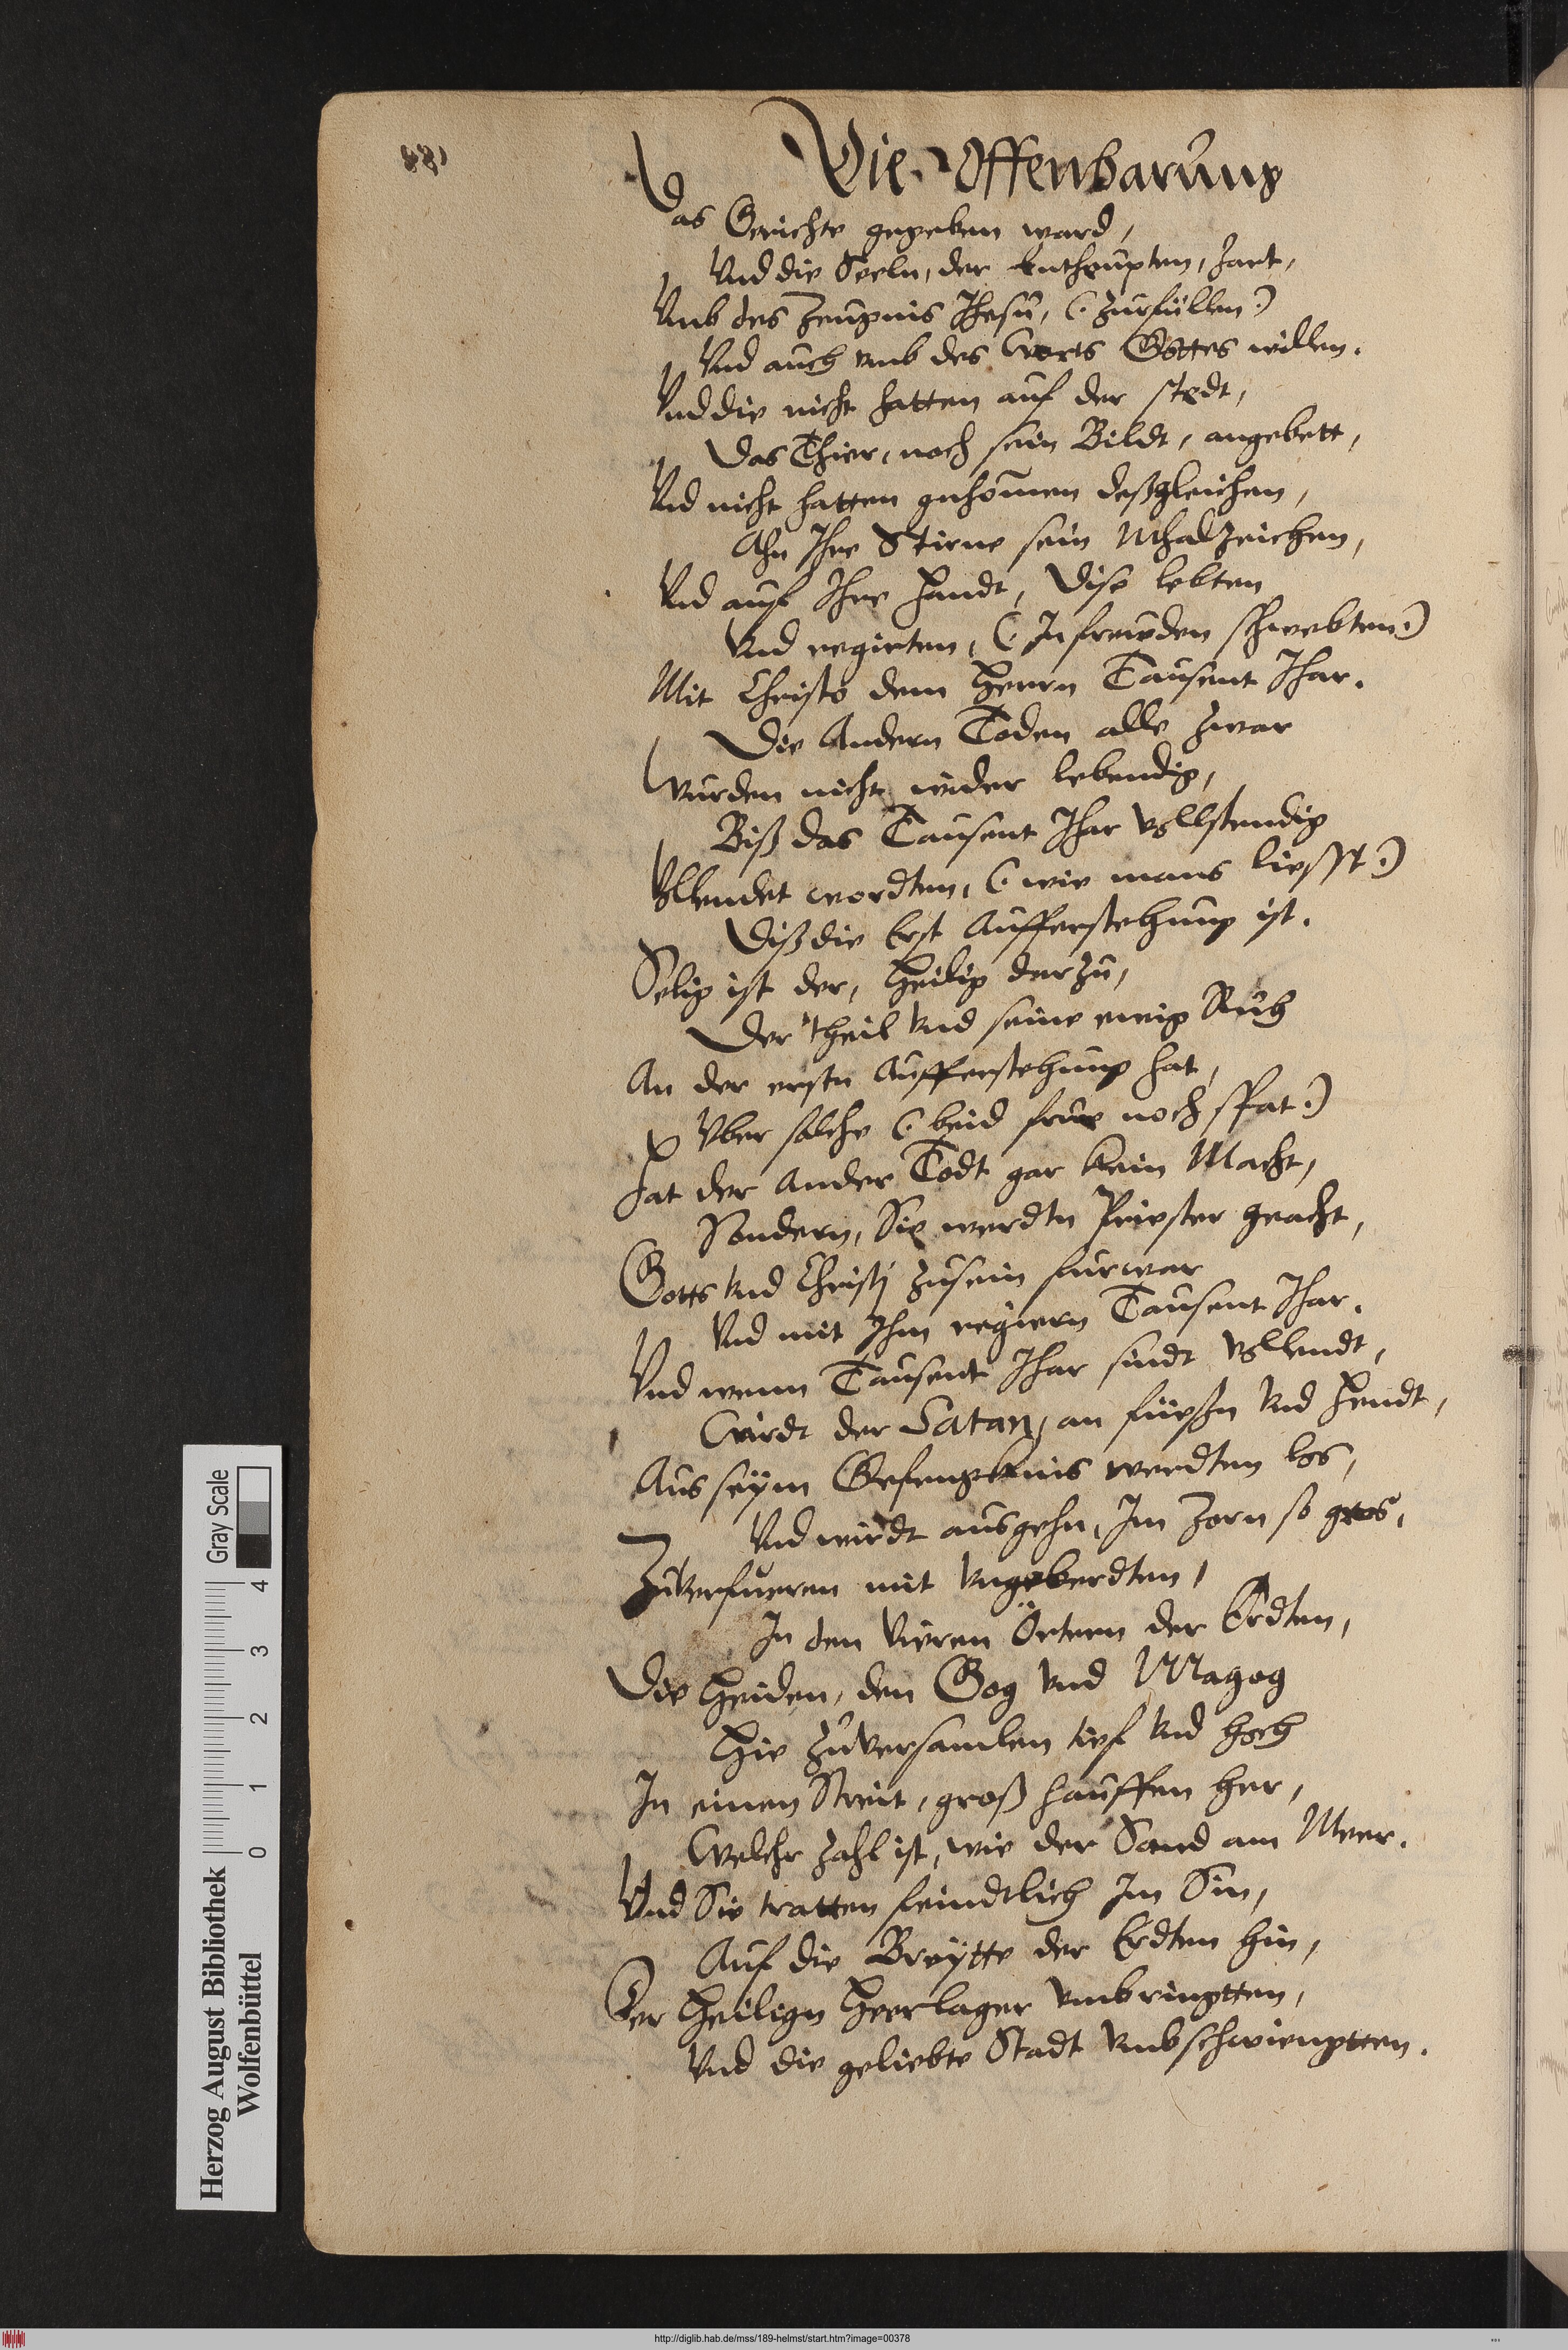 Die Offenbarung
Das Gerichte gegeben ward,
Vnd die Seeln, der Entheupten, hart,
Vmb des Zeugnis Jhesu, (: zurfüllen :)
Vnd auch vmb des Worts Gottes willen.
Vnd die nicht hatten auf der stedt,
Das Thier, noch sein Bildt, angebett,
Vnd nicht hatten gnhommen deßgleichen,
Ahn Ihre Stirne sein Mhalzeichen,
Vnd auf Ihre Handt, dise lebten
Vnd regirten, (: In freuden schwebten :)
Mit Christo dem Herrn Tausent Jhar.
Die Andern Toden alle zwar
Wurden nicht wider lebendig,
Biß das Tausent Jhar vollstendig
Vollendet wordten, (: wie mans liesst :)
Diß die Erst Aufferstehung ist.
Selig ist der, Heilig darzu,
Der theil vnd seine ewig Ruh
An der ersten Aufferstehung hat,
Vber solche (: beid frue noch spat :)
Hat der Ander Todt gar kein Macht,
Sondern, Sie werdtn Priester geacht,
Gotts vnd Christi zusein furwar
Vnd mit Ihm regiern Tausent Jhar.
Vnd wenn Tausent Jhar sindt vollendt,
Wirdt der Satan, an füeßn vnd Hendt,
Aus seym Gefengknis werdten los,
Vnd wirdt ausgehn, Im Zorn so gros,
Zuverfueren mit vngeberdten,
In den Vieren Örtern der Erdten,
Die Heiden, den Gog vnd Magog
Hie zuversamlen tief vnd hoch
In einen Streit, groß hauffen her,
Welchr zahl ist, wie der Sand am Meer.
Vnd Sie tratten feindtlich Im Sin,
Auf die Breytte der Erdten hin,
Der Heiligen Heerlager vmbringtten,
Vnd die geliebte Stadt vmbschwiengtten.
Herzog August Bibliothek
Wolfenbüttel
0 1 2 3 4
Gray Scale
http://diglib.hab.de/mss/189-helmst/start.htm?image=00378